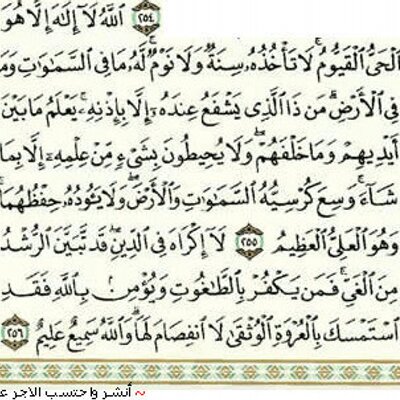 ٢٥٤ ٱللَّهُ لَآ إِلَٰهَ إِلَّا هُوَ
ٱلْحَىُّ ٱلْقَيُّومُ ۚ لَا تَأْخُذُهُۥ سِنَةٌ وَلَا نَوْمٌ ۚ لَّهُۥ مَا فِى ٱلسَّمَٰوَٰتِ وَمَا
فِى ٱلْأَرْضِ ۗ مَن ذَا ٱلَّذِى يَشْفَعُ عِندَهُۥٓ إِلَّا بِإِذْنِهِۦ ۚ يَعْلَمُ مَا بَيْنَ
أَيْدِيهِمْ وَمَا خَلْفَهُمْ ۖ وَلَا يُحِيطُونَ بِشَىْءٍ مِّنْ عِلْمِهِۦٓ إِلَّا بِمَا
شَآءَ ۚ وَسِعَ كُرْسِيُّهُ ٱلسَّمَٰوَٰتِ وَٱلْأَرْضَ ۖ وَلَا يَـُٔودُهُۥ حِفْظُهُمَا ۚ
وَهُوَ ٱلْعَلِىُّ ٱلْعَظِيمُ ٢٥٥ لَآ إِكْرَاهَ فِى ٱلدِّينِ ۖ قَد تَّبَيَّنَ ٱلرُّشْدُ
مِنَ ٱلْغَىِّ ۚ فَمَن يَكْفُرْ بِٱلطَّٰغُوتِ وَيُؤْمِنۢ بِٱللَّهِ فَقَدِ
ٱسْتَمْسَكَ بِٱلْعُرْوَةِ ٱلْوُثْقَىٰ لَا ٱنفِصَامَ لَهَا ۗ وَٱللَّهُ سَمِيعٌ عَلِيمٌ ٢٥٦
~ أنشر واحتسب الاجر